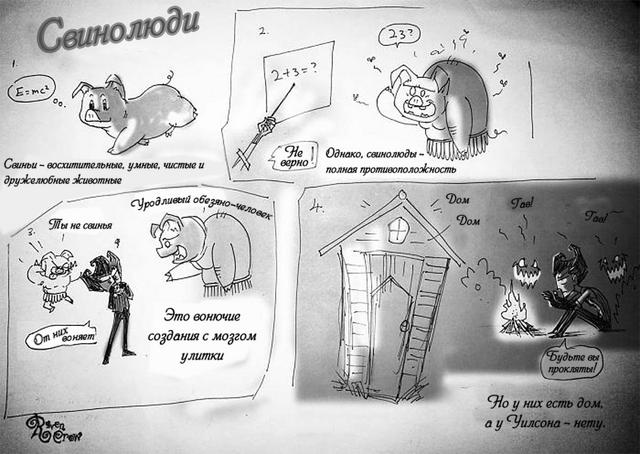 Свинолюди
1.
E=mc²
Свиньи – восхитительные, умные, чистые и
дружелюбные животные
2.
2+3=?
Не
верно!
23?
Однако, свинолюды –
полная противоположность
3.
Ты не свинья
От них
воняет
Уродливый обезяно-человек
Это вонючие
создания с мозгом
улитки
4.
Дом
Дом
Гав!
Гав!
Будьте вы
прокляты!
Но у них есть дом,
а у Уилсона – нету.